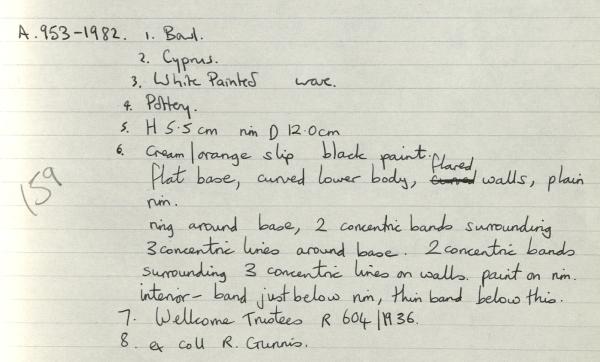 A.953-1982. 1. Bowl.
2. Cyprus.
3. White Painted ware.
4. Pottery.
5. H 5.5cm rim D 12.0cm
6. Cream/orange slip black paint.
flat base, curved lower body, flared walls, plain
rim.
ring around base, 2 concentric bands surrounding
3 concentric lines around base. 2 concentric bands
surrounding 3 concentric lines on walls. paint on rim.
interior - band just below rim, thin band below this.
7. Wellcome Trustees R 604/1936.
8. ex coll R. Gunnis.
159